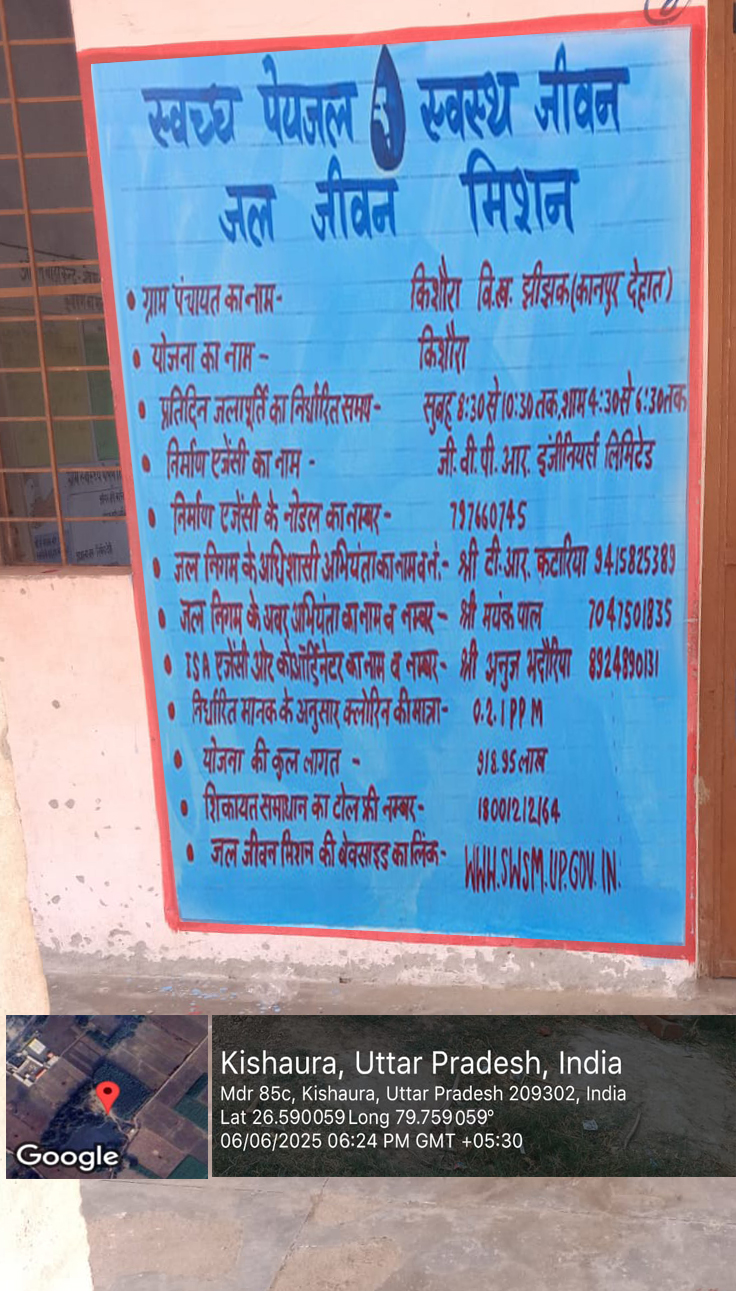 स्वच्छ पेयजल स्वस्थ जीवन
जल जीवन मिशन
• ग्राम पंचायत का नाम- किशौरा वि.ख. झींझक(कानपुर देहात)
• योजना का नाम - किशौरा
• प्रतिदिन जलापूर्ति का निर्धारित समय- सुबह 8:30 से 10:30 तक,शाम 4:30 से 6:30 तक
• निर्माण एजेंसी का नाम - जी. वी. पी. आर. इंजीनियर्स लिमिटेड
• निर्माण एजेंसी के नोडल का नम्बर- 797660745
• जल निगम के अधिशासी अभियंता का नाम व नं.- श्री टी.आर. कटारिया 9415825389
• जल निगम के अवर अभियंता का नाम व नम्बर- श्री मयंक पाल 7047501835
• ISA एजेंसी और कोऑर्डिनेटर का नाम व नम्बर- श्री अनुज भदौरिया 8924890131
• निर्धारित मानक के अनुसार क्लोरिन की मात्रा- 0.2.1 PPM
• योजना की कुल लागत - 918.95 लाख
• शिकायत समाधान का टोल फ्री नम्बर- 18001212164
• जल जीवन मिशन की बेवसाइड का लिंक- WWW.SWSM.UP.GOV.IN.
Kishaura, Uttar Pradesh, India
Mdr 85c, Kishaura, Uttar Pradesh 209302, India
Lat 26.590059 Long 79.759059°
06/06/2025 06:24 PM GMT +05:30
Google